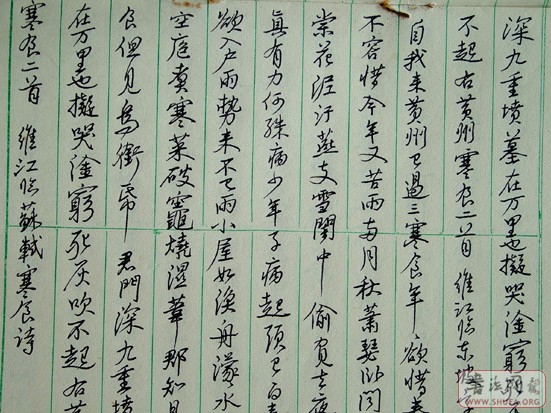 深九重墳墓在万里也擬哭塗窮
不起右黄州寒食二首 維江临东坡
自我来黄州已過三寒食年々欲惜春
不容惜今年又苦雨两月秋蕭瑟卧闻
棠花泥汙燕支雪闇中偷負去夜
真有力何殊病少年子病起頭已白
欲入户雨势来不已雨小屋如渔舟濛水
空庖煮寒菜破竈燒湿葦那知是
食但见烏銜帋君門深九重墳
在万里也擬哭塗窮死灰吹不起右黄
寒食二首 維江临蘇軾寒食诗
書法网
WWW.SHUFA.ORG